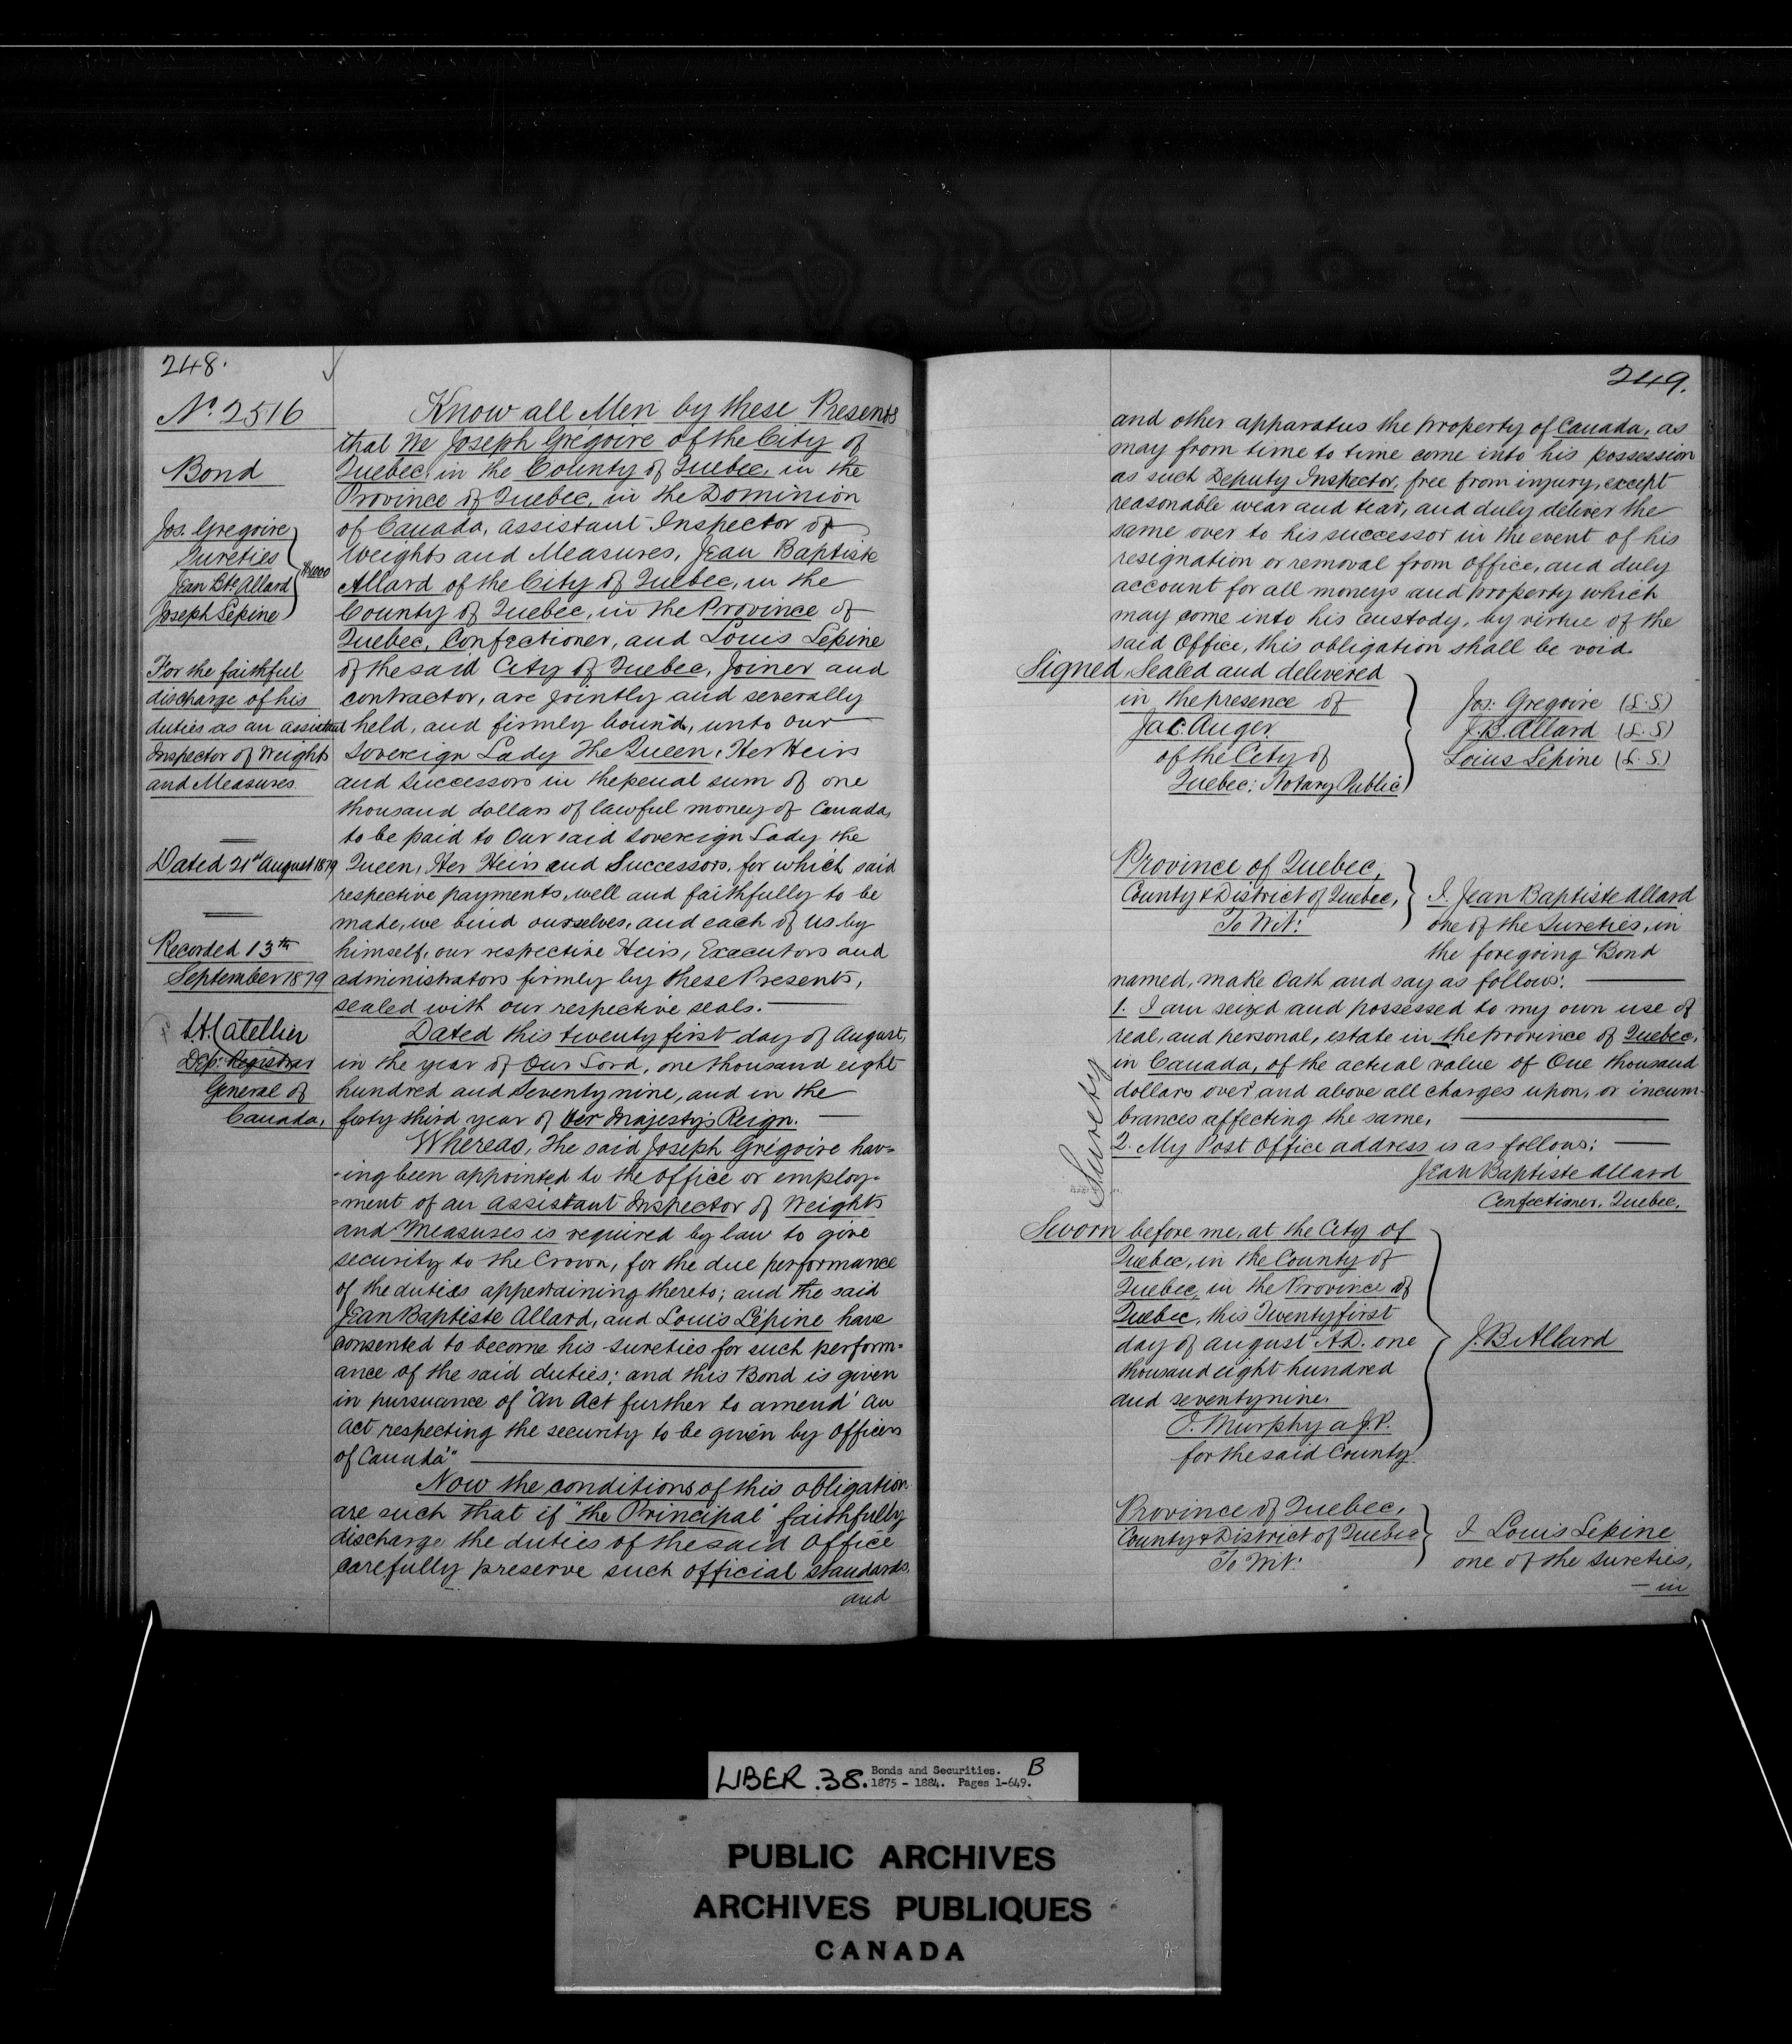 248.
No. 2516
Bond
Jos. Gregoire
Sureties
Jean Bte. Allard
Joseph Lepine
$1000
For the faithful
discharge of his
duties as an assistant
Inspector of Weights
and Measures.
Dated 21st August 1879
Recorded 13th
September 1879
L.H. Catellier
Dep: Registrar
General of
Canada,
Know all Men by these Presents
that We Joseph Grégoire of the City of
Quebec, in the County of Quebec, in the
Province of Quebec, in the Dominion
of Canada, assistant Inspector of
Weights and Measures, Jean Baptiste
Allard of the City of Quebec, in the
County of Quebec, in the Province of
Quebec, Confectioner, and Louis Lépine
of the said City of Quebec, Joiner and
contractor, are jointly and severally
held, and firmly bound, unto our
Sovereign Lady The Queen, Her Heirs
and Successors in the penal sum of one
thousand dollars of lawful money of Canada,
to be paid to Our said Sovereign Lady the
Queen, Her Heirs and Successors, for which said
respective payments, well and faithfully to be
made, we bind ourselves, and each of us by
himself, our respective Heirs, Executors and
administrators firmly by these Presents,
sealed with our respective seals.
Dated this twenty first day of August,
in the year of Our Lord, one thousand eight
hundred and Seventy nine, and in the
forty third year of Her Majesty's Reign.
Whereas, The said Joseph Grégoire hav=
=ing been appointed to the office or employ=
=ment of an assistant Inspector of Weights
and Measures is required by law to give
security to the Crown, for the due performance
of the duties appertaining thereto; and the said
Jean Baptiste Allard, and Louis Lépine have
consented to become his sureties for such perform=
ance of the said duties; and this Bond is given
in pursuance of "An Act further to amend 'An
Act respecting the security to be given by Officers
of Canada'"
Now the conditions of this obligation
are such that if "the Principal" faithfully
discharge the duties of the said Office
carefully preserve such official standards,
and
249.
and other apparatus the property of Canada, as
may from time to time come into his possession
as such Deputy Inspector, free from injury, except
reasonable wear and tear, and duly deliver the
same over to his successor in the event of his
resignation or removal from Office, and duly
account for all moneys and property which
may come into his custody, by virtue of the
said Office, this obligation shall be void.
Signed, Sealed and delivered
in the presence of
Jac. Auger
of the City of
Quebec; Notary Public
Jos: Gregoire (L.S)
J.B. Allard (L.S)
Louis Lepine (L.S)
Province of Quebec,
County & District of Quebec,
To Wit:
I, Jean Baptiste Allard
one of the Sureties, in
the foregoing Bond
named, make Oath and say as follows:
1. I am seized and possessed to my own use of
real, and personal, estate in the province of Quebec,
in Canada, of the actual value of One thousand
dollars over and above all charges upon, or incum-
brances affecting the same.
2. My Post Office address is as follows:
Jean Baptiste Allard
Confectioner, Quebec.
Surety
Sworn before me, at the City of
Quebec, in the County of
Quebec, in the Province of
Quebec, this Twentyfirst
day of august A.D. one
thousand eight hundred
and seventynine.
O. Murphy a J.P.
for the said County.
J. B Allard
Province of Quebec,
County & District of Quebec
To Wit:
I Louis Lepine
one of the sureties,
- in
LIBER .38. Bonds and Securities. B
1875 - 1884. Pages 1-649.
PUBLIC ARCHIVES
ARCHIVES PUBLIQUES
CANADA